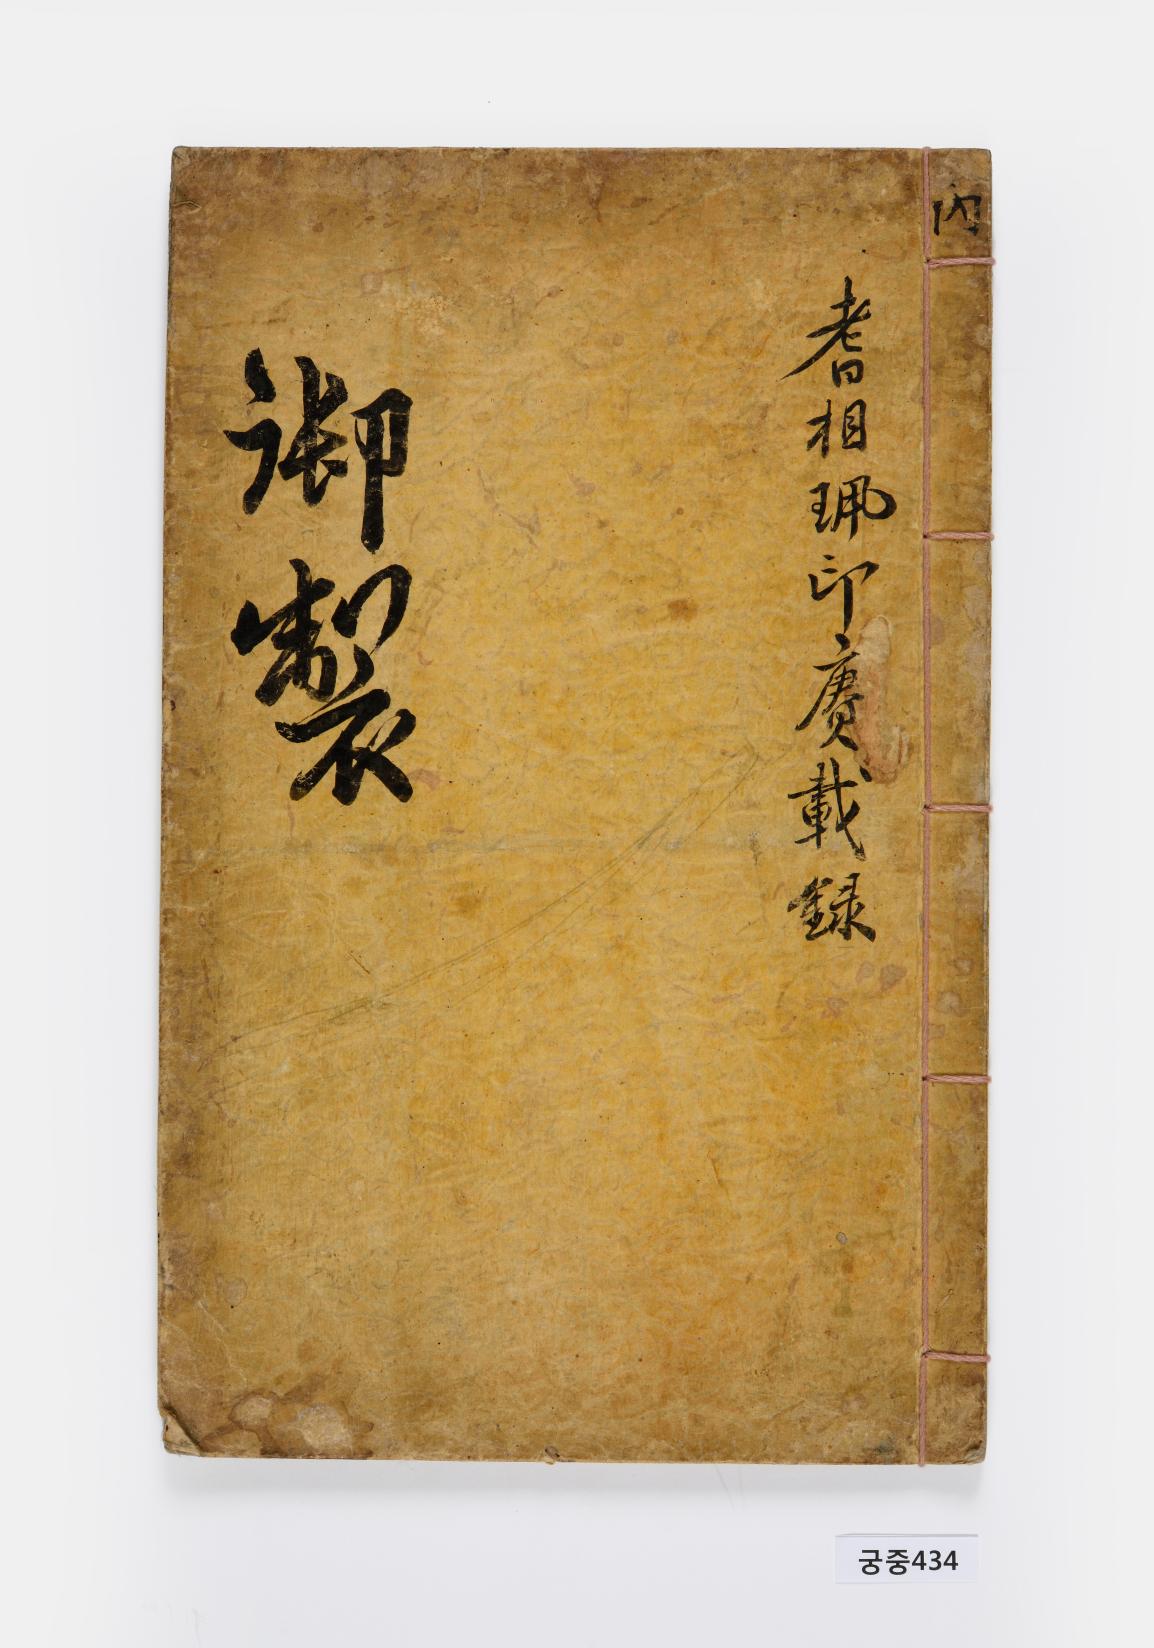 內
耆相珮印賡載錄
御製
궁중434